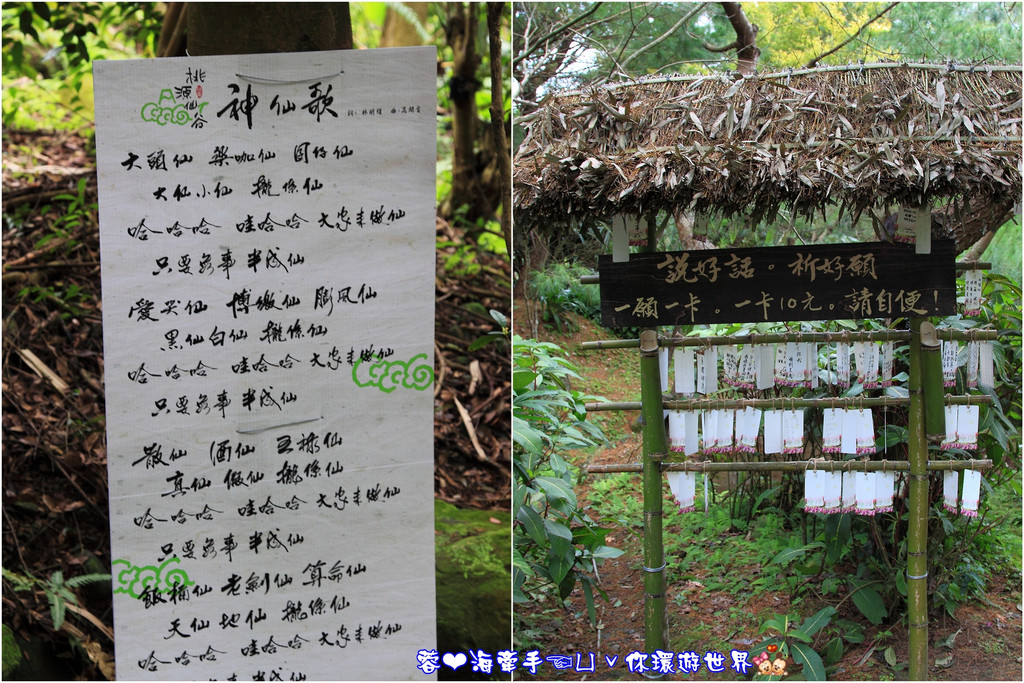 桃源仙谷
神仙歌
大頭仙 樂咖仙 囝仔仙
大仙小仙 攏係仙
哈哈哈 哇哈哈 大家來做仙
只要無事 半成仙
愛哭仙 博繳仙 膨風仙
黑仙白仙 攏係仙
哈哈哈 哇哈哈 大家來做仙
只要無事 半成仙
散仙 酒仙 豆標仙
真仙 假仙 攏係仙
哈哈哈 哇哈哈 大家來做仙
只要無事 半成仙
飯桶仙 老劍仙 算命仙
天仙 地仙 攏係仙
哈哈哈 哇哈哈 大家來做仙
只要無事 半成仙
說好話。祈好願
一願一卡。一卡10元。請自便!
蓉❤海牽手☜ㄩˇ你環遊世界